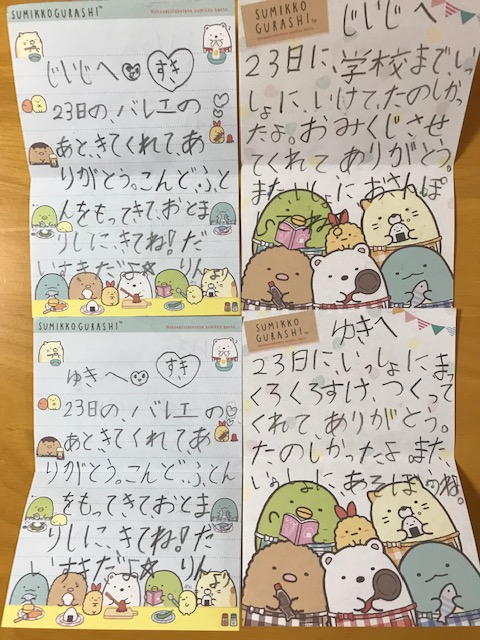 SUMIKKOGURASHI™
じいじへ すき
23日の、バレエの
あと、きてくれて、あ
りがとう。こんど、ふと
んをもってきて、おとま
りしに、きてね!だ
いすきだよ☆ りんより
SUMIKKO
GURASHI™
じいじへ
23日に、学校まで、いっ
しょに、いけて、たのしかっ
たよ。おみくじ、させ
てくれて ありがとう。
また、いっしょに おさんぽ
SUMIKKOGURASHI™
ゆきへ すき
23日の、バレエの
あと、きてくれて、あ
りがとう。こんど、ふとん
をもってきて おとま
りしに、きてね!だ
いすきだよ☆ りん
SUMIKKO
GURASHI™
ゆきへ
23日に、いっしょに まっ
くろくろすけ、つくって
くれて ありがとう。
たのしかったよ。また、
いっしょに、あそぼうね。